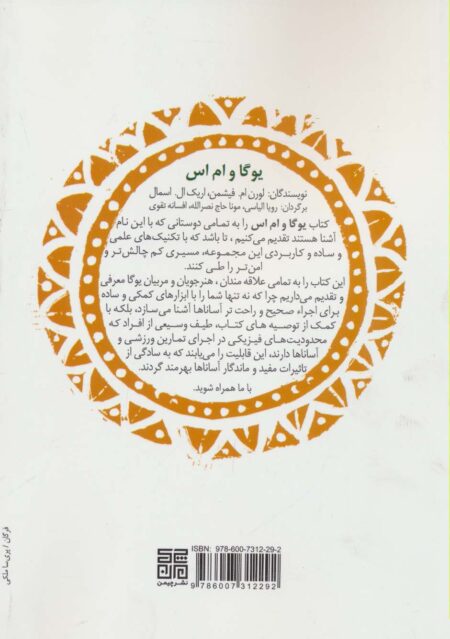 یوگا و ام اس
نویسندگان: لورن ام. فیشمن، اریک ال. اسمال
برگردان: رویا الیاسی، مونا حاج نصرالله، افسانه تقوی
کتاب یوگا و ام اس را به تمامی دوستانی که با این نام
آشنا هستند تقدیم می‌کنیم ، تا باشد که با تکنیک‌های علمی
و ساده و کاربردی این مجموعه، مسیری کم چالش‌تر و
امن‌تر را طی کنند.
این کتاب را به تمامی علاقه مندان ، هنرجویان و مربیان یوگا معرفی
و تقدیم می‌داریم چرا که نه تنها شما را با ابزارهای کمکی و ساده
برای اجراء صحیح و راحت تر آساناها آشنا می‌سازد، بلکه با
کمک از توصیه های کتاب، طیف وسیعی از افراد که
محدودیت‌های فیزیکی در اجرای تمارین ورزشی و
آساناها دارند، این قابلیت را می‌یابند که به سادگی از
تاثیرات مفید و ماندگار آساناها بهرمند گردند.
با ما همراه شوید.
ISBN: 978-600-7312-29-2
9 786007 312292
نشر چیمن
فرگان / پریسا ملکی